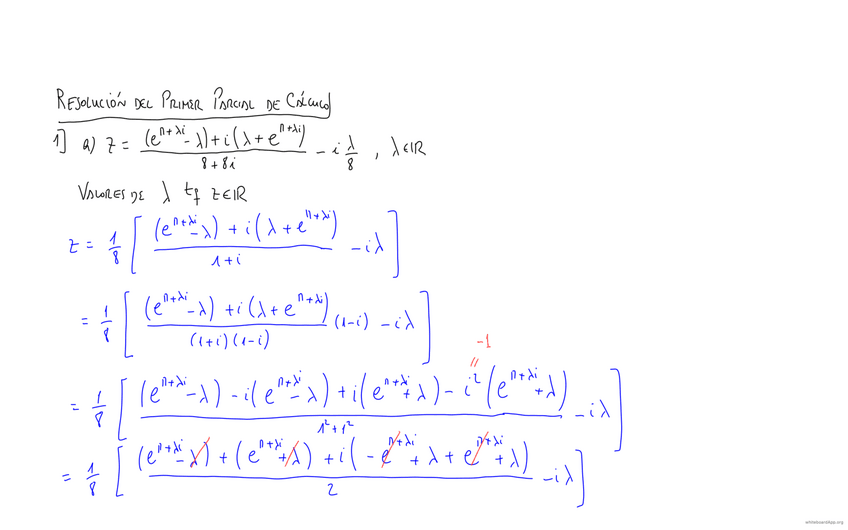 RESOLUCIÓN DEL PRIMER PARCIAL DE CÁLCULO
1] a) z = ((e^{π+λi} - λ) + i(λ + e^{π+λi})) / (8+8i) - i λ/8 , λ∈ℝ
VALORES DE λ tq z∈ℝ
z = 1/8 [ ((e^{π+λi} - λ) + i(λ + e^{π+λi})) / (1+i) - iλ ]
= 1/8 [ ((e^{π+λi} - λ) + i(λ + e^{π+λi})) / ((1+i)(1-i)) (1-i) - iλ ]
-1
=
= 1/8 [ ((e^{π+λi} - λ) - i(e^{π+λi} - λ) + i(e^{π+λi} + λ) - i²(e^{π+λi} + λ)) / (1²+1²) - iλ ]
= 1/8 [ ((e^{π+λi} - λ) + (e^{π+λi} + λ) + i(-e^{π+λi} + λ + e^{π+λi} + λ)) / 2 - iλ ]
whiteboardapp.org